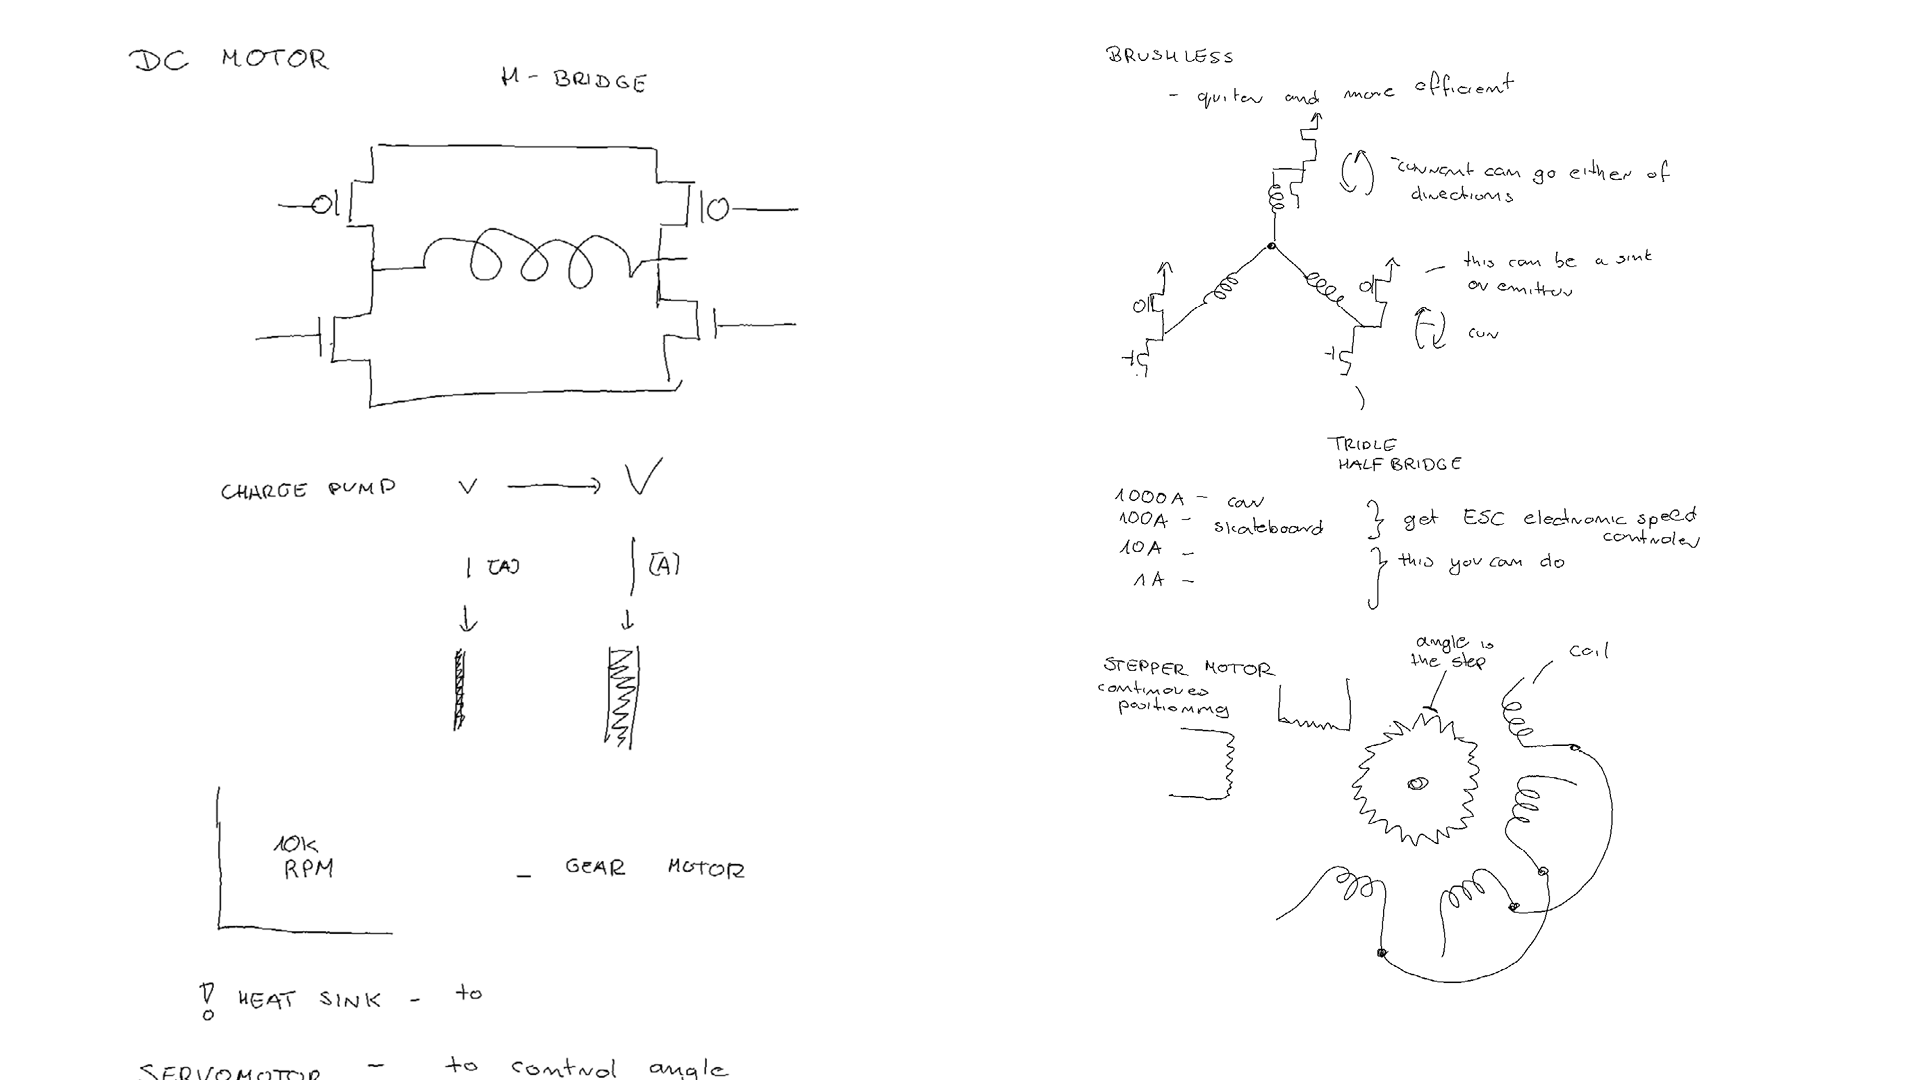 DC MOTOR
H-BRIDGE
CHARGE PUMP V → V
[A] [A]
10K
RPM
- GEAR MOTOR
! HEAT SINK - to
SERVOMOTOR - to control angle
BRUSHLESS
- quiter and more efficient
current can go either of
directions
- this can be a sink
or emitter
CUR
TRIPLE
HALF BRIDGE
1000A - car
100A - skateboard
} get ESC electronic speed
controler
10A -
1A -
} this you can do
STEPPER MOTOR
continoues
positioning
angle is
the step
coil